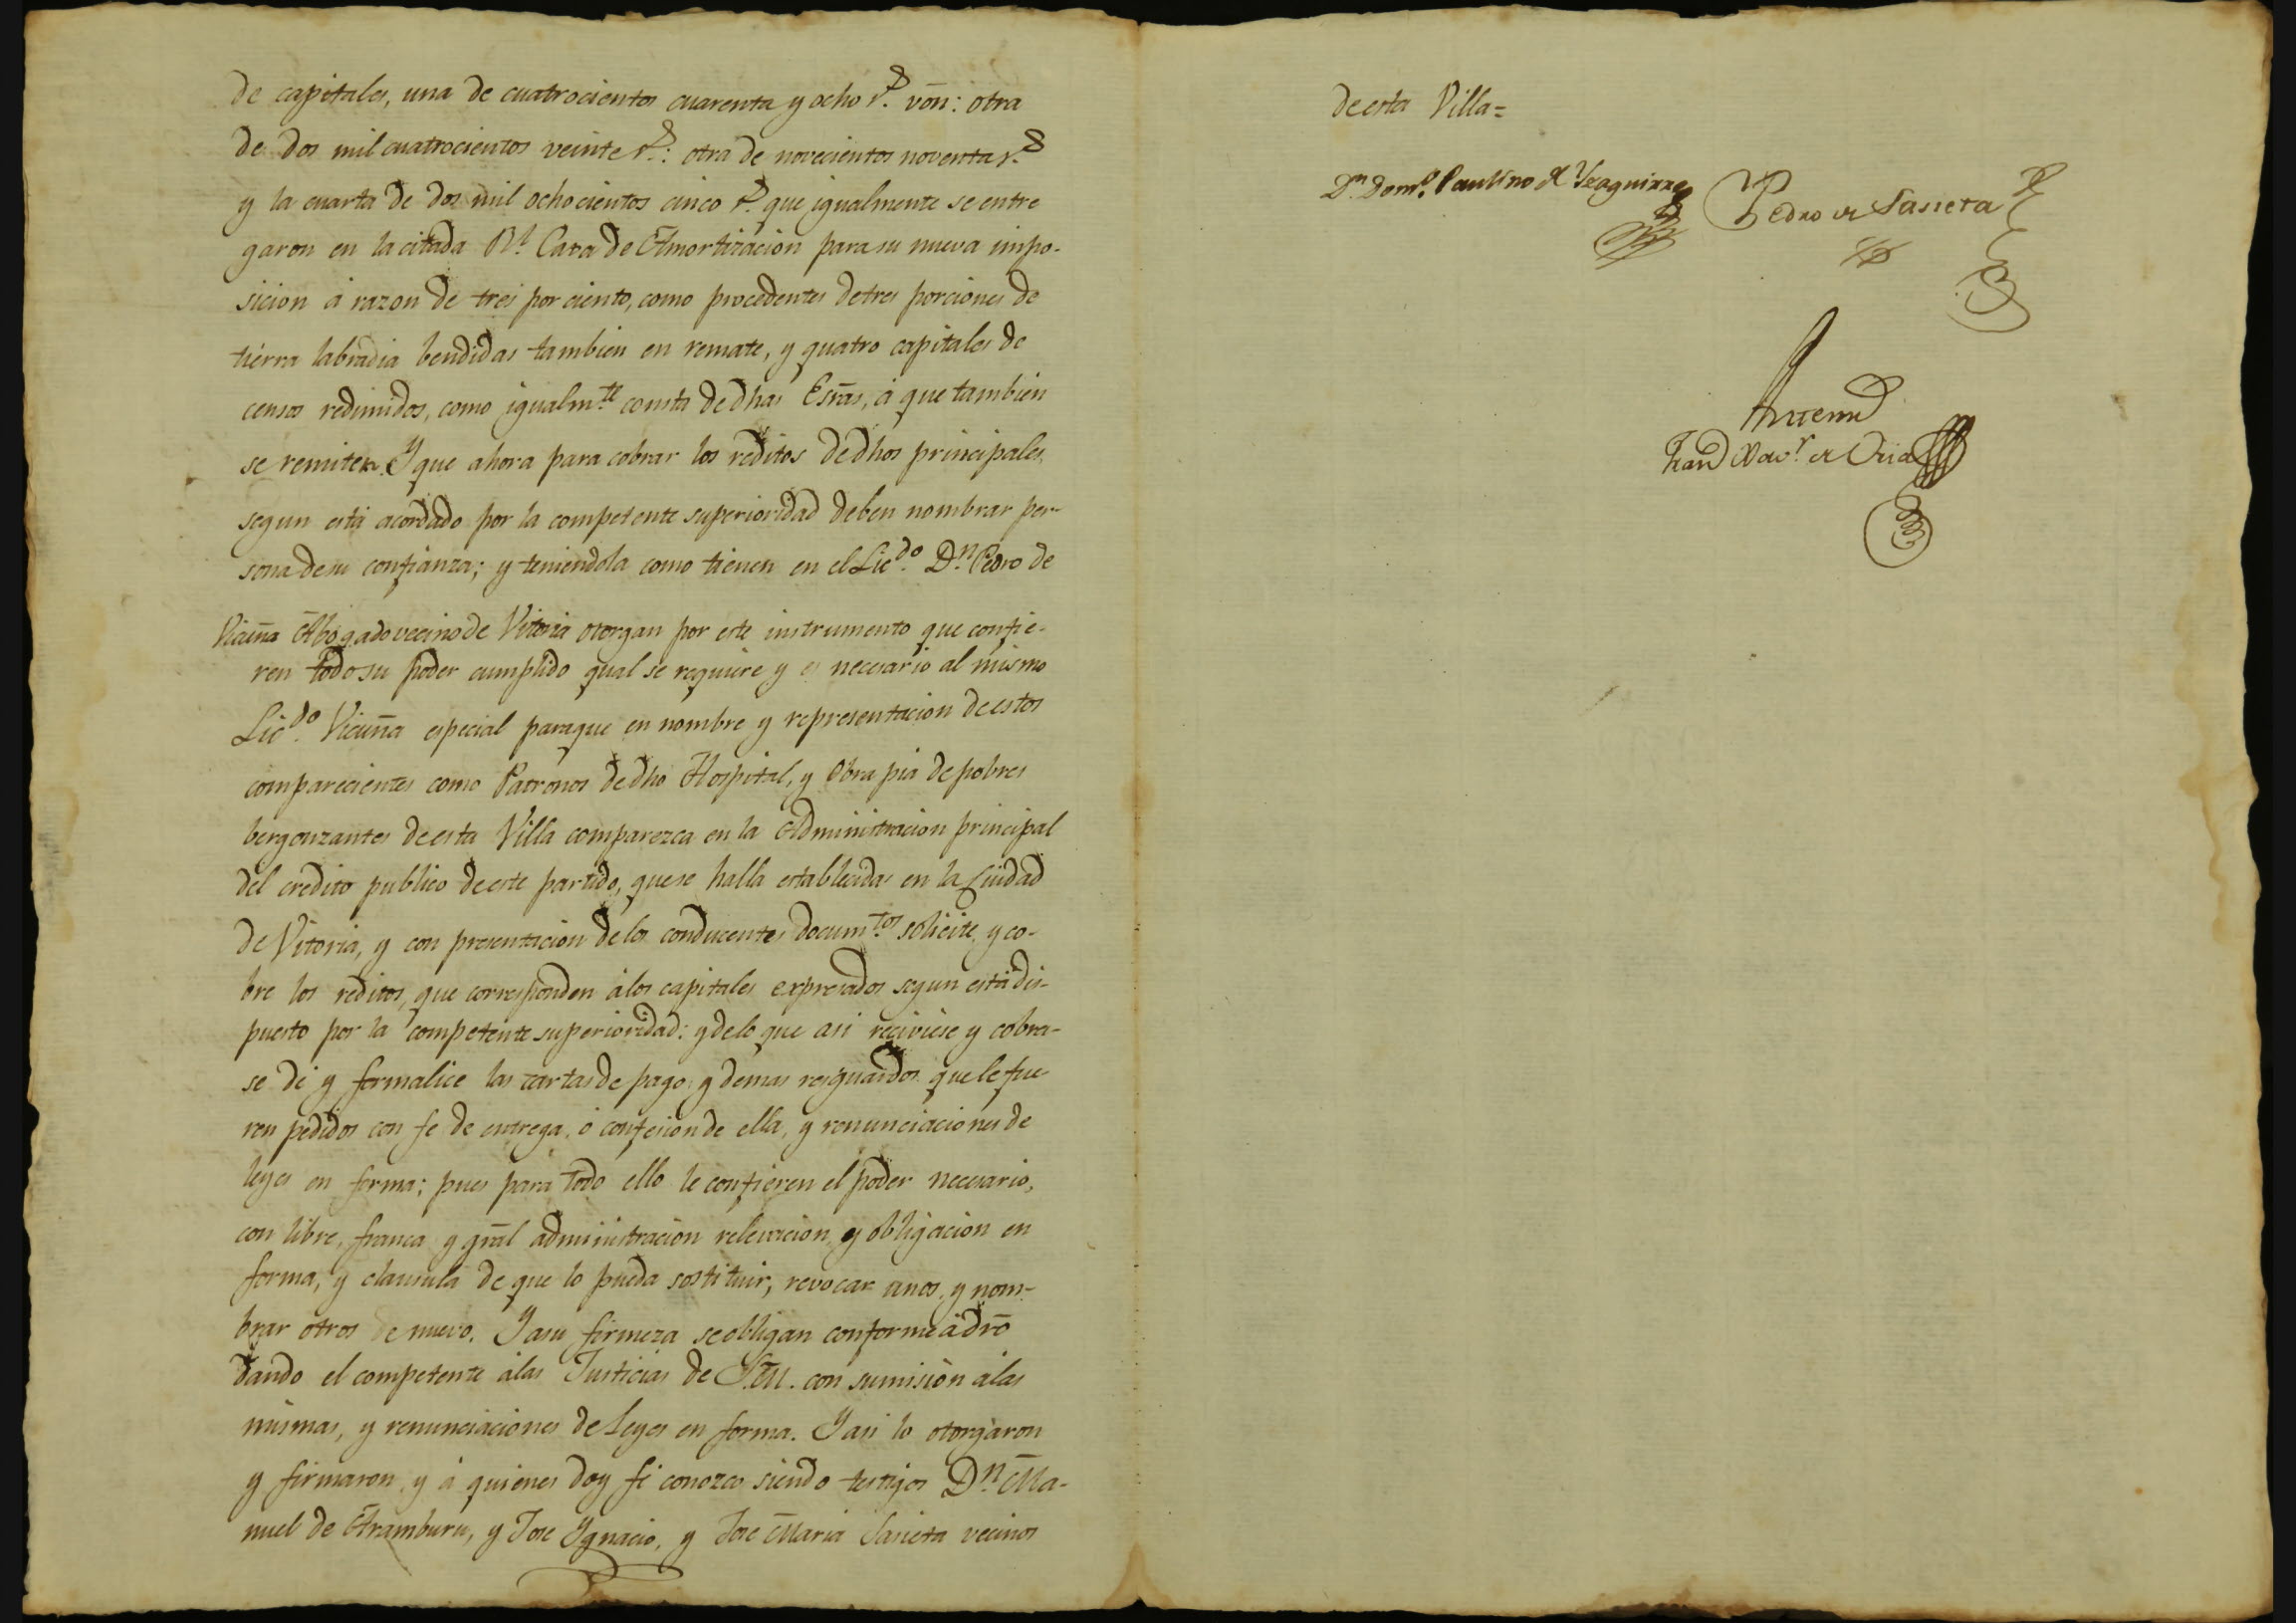 de capitales, una de cuatrocientos cuarenta y ocho r.ˢ von: otra
de dos mil cuatrocientos veinte r.ˢ: otra de novecientos noventa r.ˢ
y la cuarta de dos mil ochocientos cinco r.ˢ que igualmente se entre
garon en la citada Rl. Caxa de Amortizacion para su nueva impo-
sicion á razon de tres por ciento, como procedentes de tres porciones de
tierra labradia bendidas tambien en remate, y quatro capitales de
censos redimidos, como igualm.te consta de dhas Esras, á que tambien
se remiten. Y que ahora para cobrar los reditos de dhos principales,
segun está acordado por la competente superioridad deben nombrar per-
sona de su confianza; y teniendola como tienen en el Lic.do D.n Pedro de
Vicuña Abogado vecino de Vitoria otorgan por este instrumento que confie-
ren todo su poder cumplido qual se requiere y es necesario al mismo
Lic.do Vicuña especial para que en nombre y representacion de estos
comparecientes como Patronos de dho Hospital, y Obra pia de pobres
bergonzantes de esta Villa comparezca en la Administracion principal
del credito publico de este partido, que se halla establecida en la Ciudad
de Vitoria, y con presentacion de los conducentes docum.tos solicite, y co-
bre los reditos, que corresponden á los capitales expresados segun está dis-
puesto por la competente superioridad: y de lo que asi reciviese y cobra-
se dé y formalice las cartas de pago, y demas resguardos que le fue-
ren pedidos con fe de entrega, ó confesion de ella, y renunciaciones de
leyes en forma; pues para todo ello le confieren el poder necesario,
con libre, franca y gral administracion relevacion, y obligacion en
forma, y clausula de que lo pueda sostituir, revocar unos, y nom-
brar otros de nuevo. Y a su firmeza se obligan conforme á dro
dando el competente á las Justicias de S.M. con sumisión á las
mismas, y renunciaciones de Leyes en forma. Y asi lo otorgaron
y firmaron, y á quienes doy fé conozco siendo testigos D.n Ma-
nuel de Aramburu, y Jose Ygnacio, y Jose Maria Lasieta vecinos
de esta Villa=
D.n Dom.o Paulino de Yzaguirre
Pedro de Lasieta
Ante mi
Fran.co Xav.r de Oria